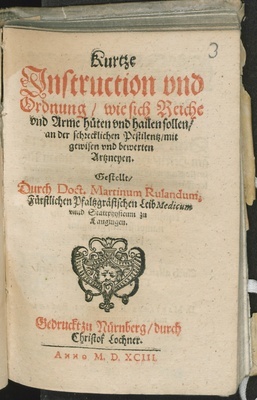 3
Kurtze
Instruction vnd
Ordnung / wie sich Reiche
vnd Arme hüten vnd halten sollen /
an der schrecklichen Pestilentz / mit
gewisen vnd bewerten
Artzneyen.
Gestellt /
Durch Doct. Martinum Rulandum,
Fürstlichen Pfaltzgräfischen Leib Medicum
vnnd Stattphysicum zu
Laugingen.
Gedruckt zu Nürnberg / durch
Christof Lochner.
ANNO M. D. XCIII.